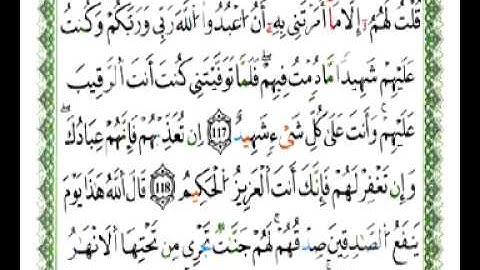 قُلْتُ لَهُمْ إِلَّا مَآ أَمَرْتَنِي بِهِۦٓ أَنِ ٱعْبُدُوا۟ ٱللَّهَ رَبِّي وَرَبَّكُمْ وَكُنتُ
عَلَيْهِمْ شَهِيدًا مَّا دُمْتُ فِيهِمْ فَلَمَّا تَوَفَّيْتَنِي كُنتَ أَنتَ ٱلرَّقِيبَ
عَلَيْهِمْ وَأَنتَ عَلَىٰ كُلِّ شَىْءٍ شَهِيدٌ 117 إِن تُعَذِّبْهُمْ فَإِنَّهُمْ عِبَادُكَ
وَإِن تَغْفِرْ لَهُمْ فَإِنَّكَ أَنتَ ٱلْعَزِيزُ ٱلْحَكِيمُ 118 قَالَ ٱللَّهُ هَٰذَا يَوْمُ
يَنفَعُ ٱلصَّٰدِقِينَ صِدْقُهُمْ لَهُمْ جَنَّٰتٌ تَجْرِى مِن تَحْتِهَا ٱلْأَنْهَٰرُ